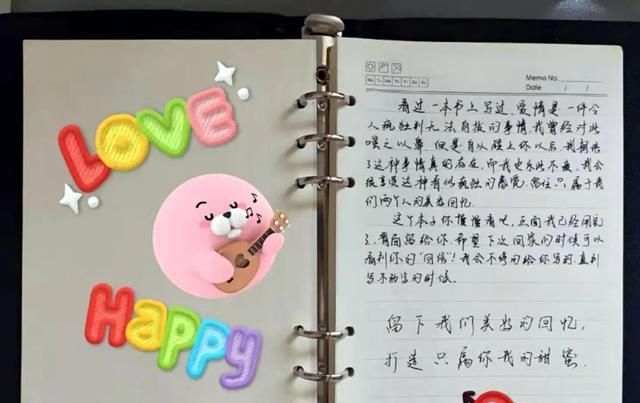 LOVE
Happy
Memo No.
Mo Tu We Th Fr Sa Su
Date / /
看过一本书上写过,爱情是一件令
人疯独到无法自拔的事情,我曾经对此
嗤之以鼻,但是自从碰上你以后,我相信
了这种事情真的存在,而我也乐此不疲,我会
很享受这种看似疯独的感觉,留住只属于我
们两个人的美好回忆.
这个本子你慢慢看吧,正面我已经用完
了,背面留给你,希望下次回家的时候可以
看到你的"回信"!我会不停的给你写的,直到
写不动写的时候.
留下我们美好的回忆,
打造只属你我的甜蜜.